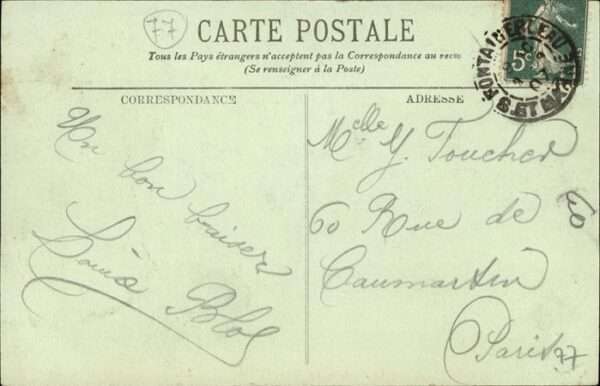 77
CARTE POSTALE
Tous les Pays étrangers n'acceptent pas la Correspondance au recto
(Se renseigner à la Poste)
FONTAINEBLEAU
SEINE ET MNE
5c
CORRESPONDANCE
ADRESSE
Un bon baiser
Blol
Melle Y. Toucher
60 Rue de
Caumartin
Paris
60
77